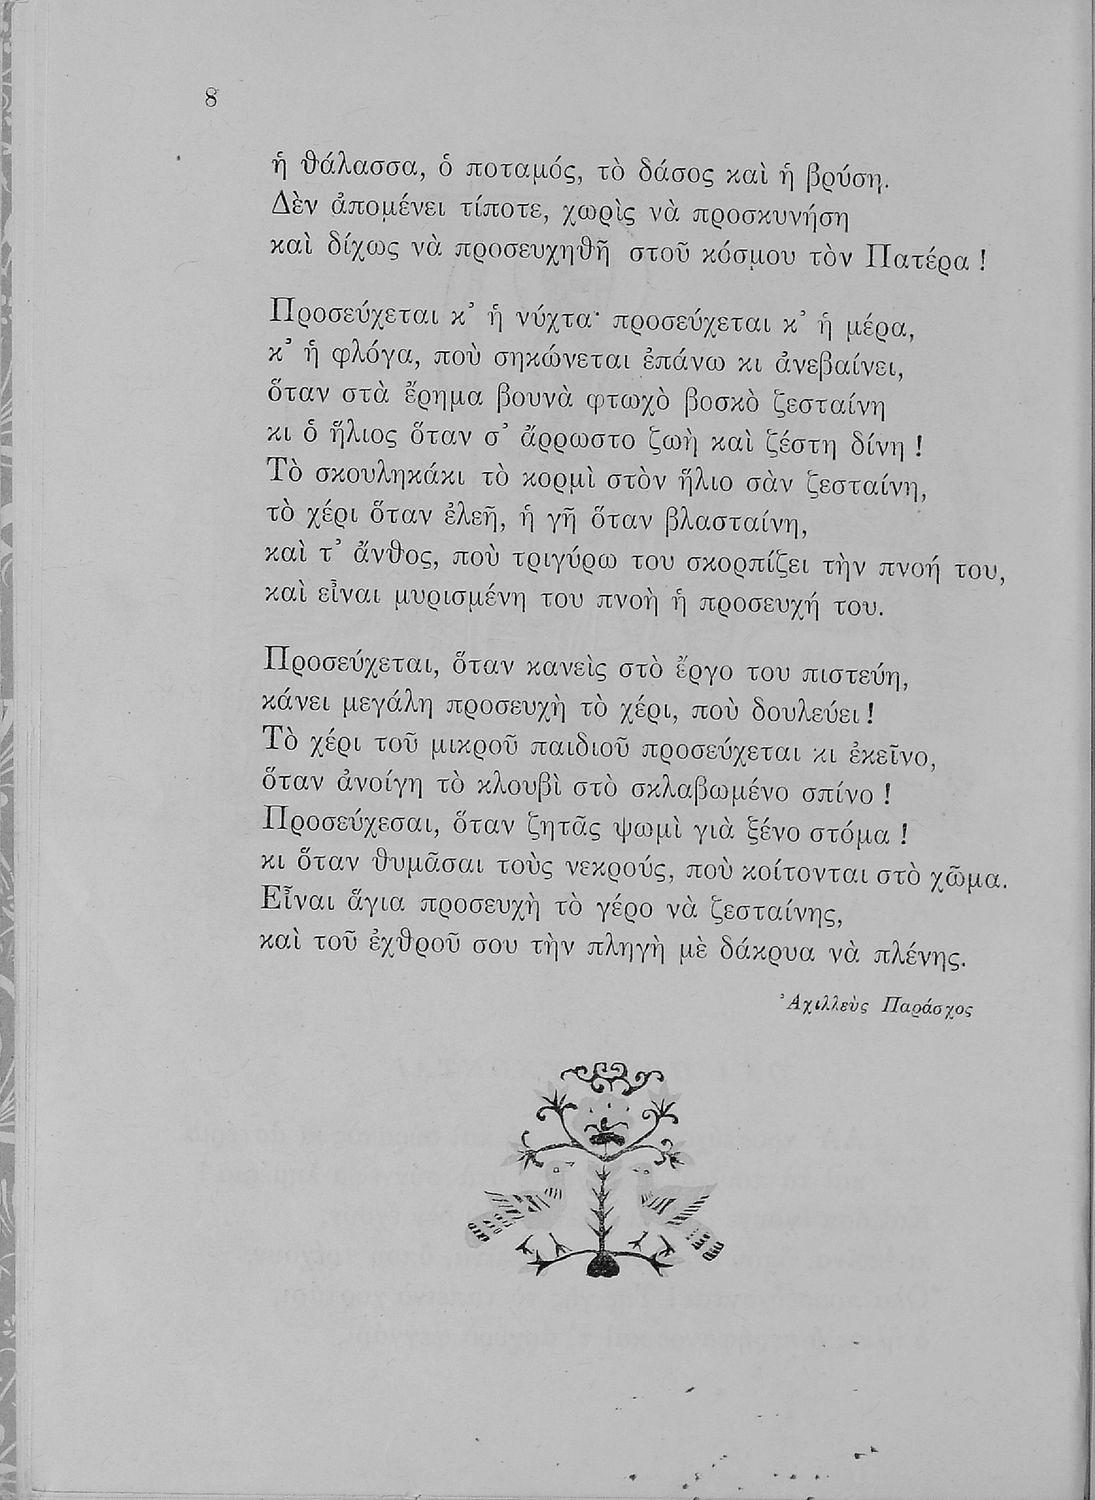 8
ἡ θάλασσα, ὁ ποταμός, τὸ δάσος καὶ ἡ βρύση.
Δὲν ἀπομένει τίποτε, χωρὶς νὰ προσκυνήση
καὶ δίχως νὰ προσευχηθῆ στοῦ κόσμου τὸν Πατέρα !
Προσεύχεται κ᾿ ἡ νύχτα· προσεύχεται κ᾿ ἡ μέρα,
κ᾿ ἡ φλόγα, ποὺ σηκώνεται ἐπάνω κι ἀνεβαίνει,
ὅταν στὰ ἔρημα βουνὰ φτωχὸ βοσκὸ ζεσταίνη
κι ὁ ἥλιος ὅταν σ᾿ ἄρρωστο ζωὴ καὶ ζέστη δίνη !
Τὸ σκουληκάκι τὸ κορμὶ στὸν ἥλιο σὰν ζεσταίνη,
τὸ χέρι ὅταν ἐλεῆ, ἡ γῆ ὅταν βλασταίνη,
καὶ τ᾿ ἄνθος, ποὺ τριγύρω του σκορπίζει τὴν πνοή του,
καὶ εἶναι μυρισμένη του πνοὴ ἡ προσευχή του.
Προσεύχεται, ὅταν κανεὶς στὸ ἔργο του πιστεύη,
κάνει μεγάλη προσευχὴ τὸ χέρι, ποὺ δουλεύει !
Τὸ χέρι τοῦ μικροῦ παιδιοῦ προσεύχεται κι ἐκεῖνο,
ὅταν ἀνοίγη τὸ κλουβὶ στὸ σκλαβωμένο σπίνο !
Προσεύχεσαι, ὅταν ζητᾶς ψωμὶ γιὰ ξένο στόμα !
κι ὅταν θυμᾶσαι τοὺς νεκρούς, ποὺ κοίτονται στὸ χῶμα.
Εἶναι ἅγια προσευχὴ τὸ γέρο νὰ ζεσταίνης,
καὶ τοῦ ἐχθροῦ σου τὴν πληγὴ μὲ δάκρυα νὰ πλένης.
Ἀχιλλεὺς Παράσχος